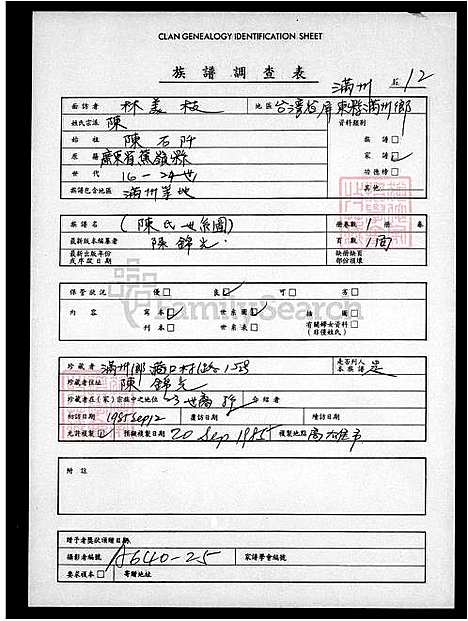 CLAN GENEALOGY IDENTIFICATION SHEET
族譜調查表
滿州 12
面訪者 林美枝 地區 台灣省屏東縣滿州鄉
姓氏宗派 陳 資料類別
始祖 陳石阡 族譜 □
原籍 廣東省蕉嶺縣 家譜 ☑
世代 16-24世 功德榜 □
族譜包含地區 滿州等地 其他
族譜名 (陳氏世系圖) 冊卷數 1 冊 卷
最新版本編纂者 陳錦光 頁數 1面
最新出版年份或序跋日期 缺冊缺頁部份損壞
保管狀況 優□ 良☑ 可□ 劣□
FamilySearch
內容 寫本☑ 世系圖☑ 插圖□
刊本□ 世系表□ 有關婦女資料□(目僅姓氏)
珍藏者 滿州鄉 是否列入本族譜 是
珍藏者住址 陳錦光
珍藏者在(家)宗族中之地位 介紹者
初訪日期 1985 Sep 12 覆訪日期 續訪日期
允許複製☑ 預擬複製日期 20 Sep 1985 複製地點 高雄市
附註
贈予者獎狀頒贈日期
攝影者編號 A640-25 家譜學會編號
要求複本□ 寄贈地址